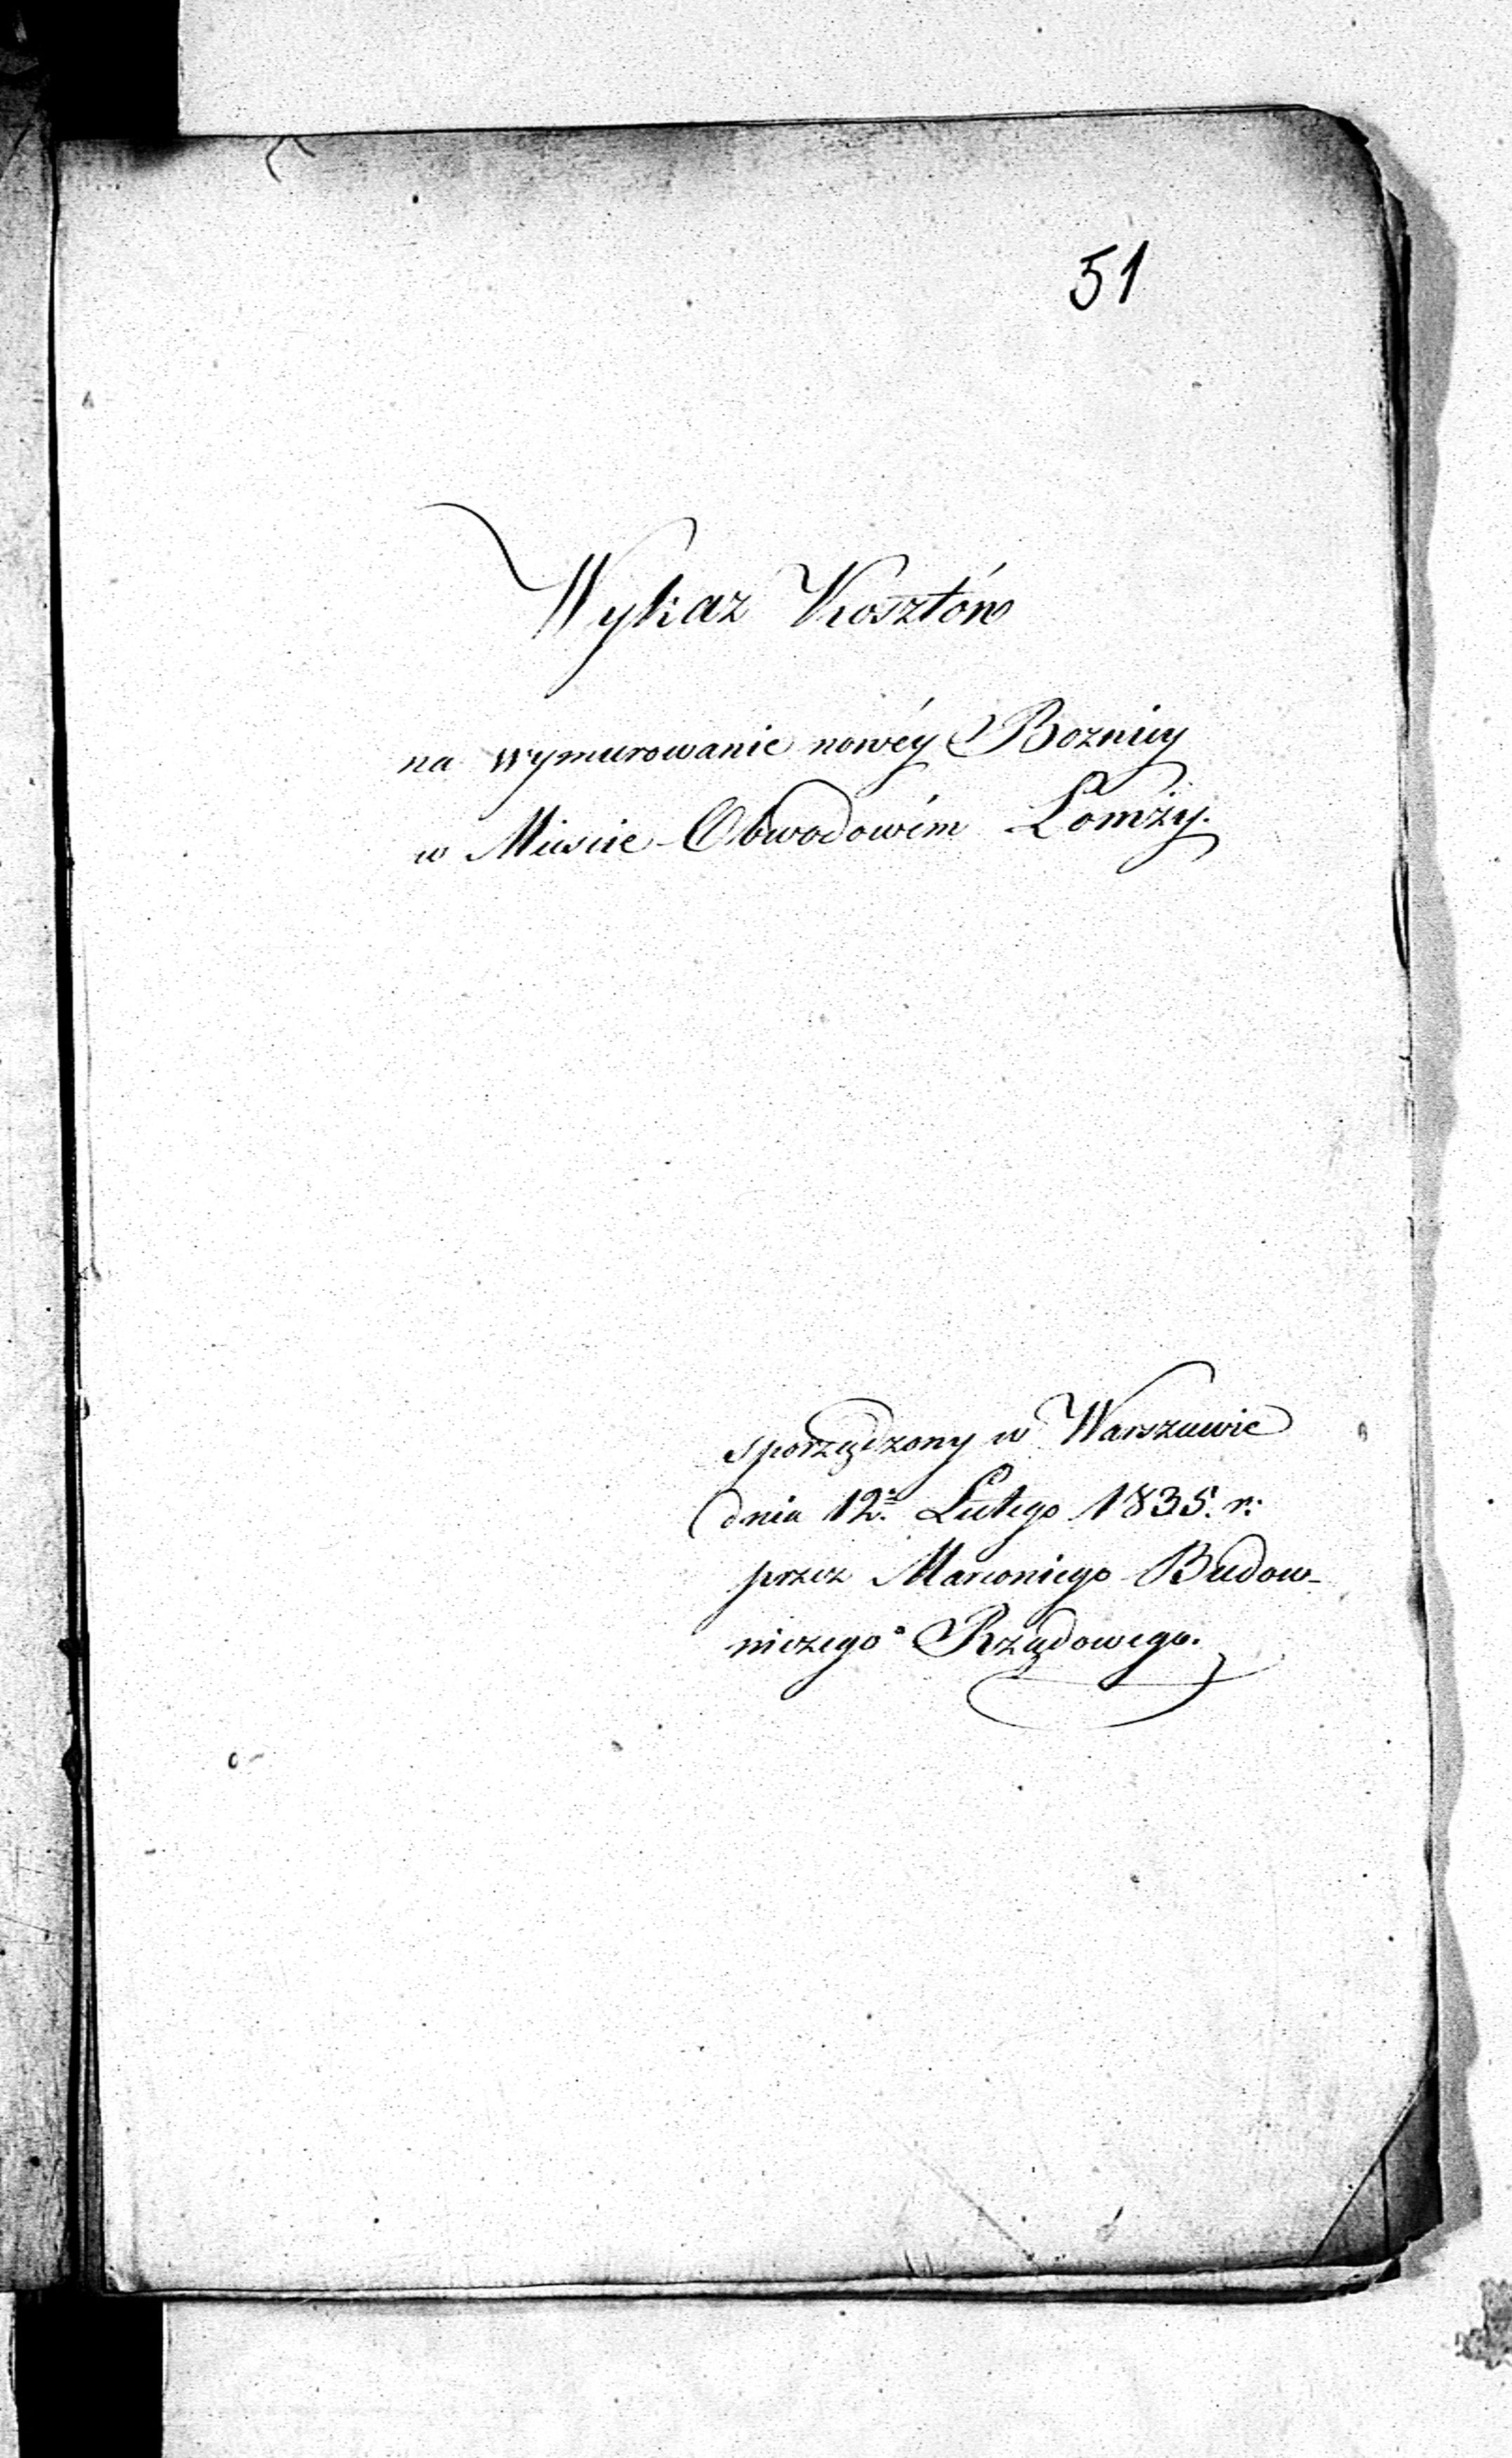 51
Wykaz Kosztów
na wymurowanie nowéy Boznicy
w Mieście Obwodowém Łomży.
sporządzony w Warszawie
dnia 12. Lutego 1835. r:
przez Marconiego Budow-
niczego Rządowego.